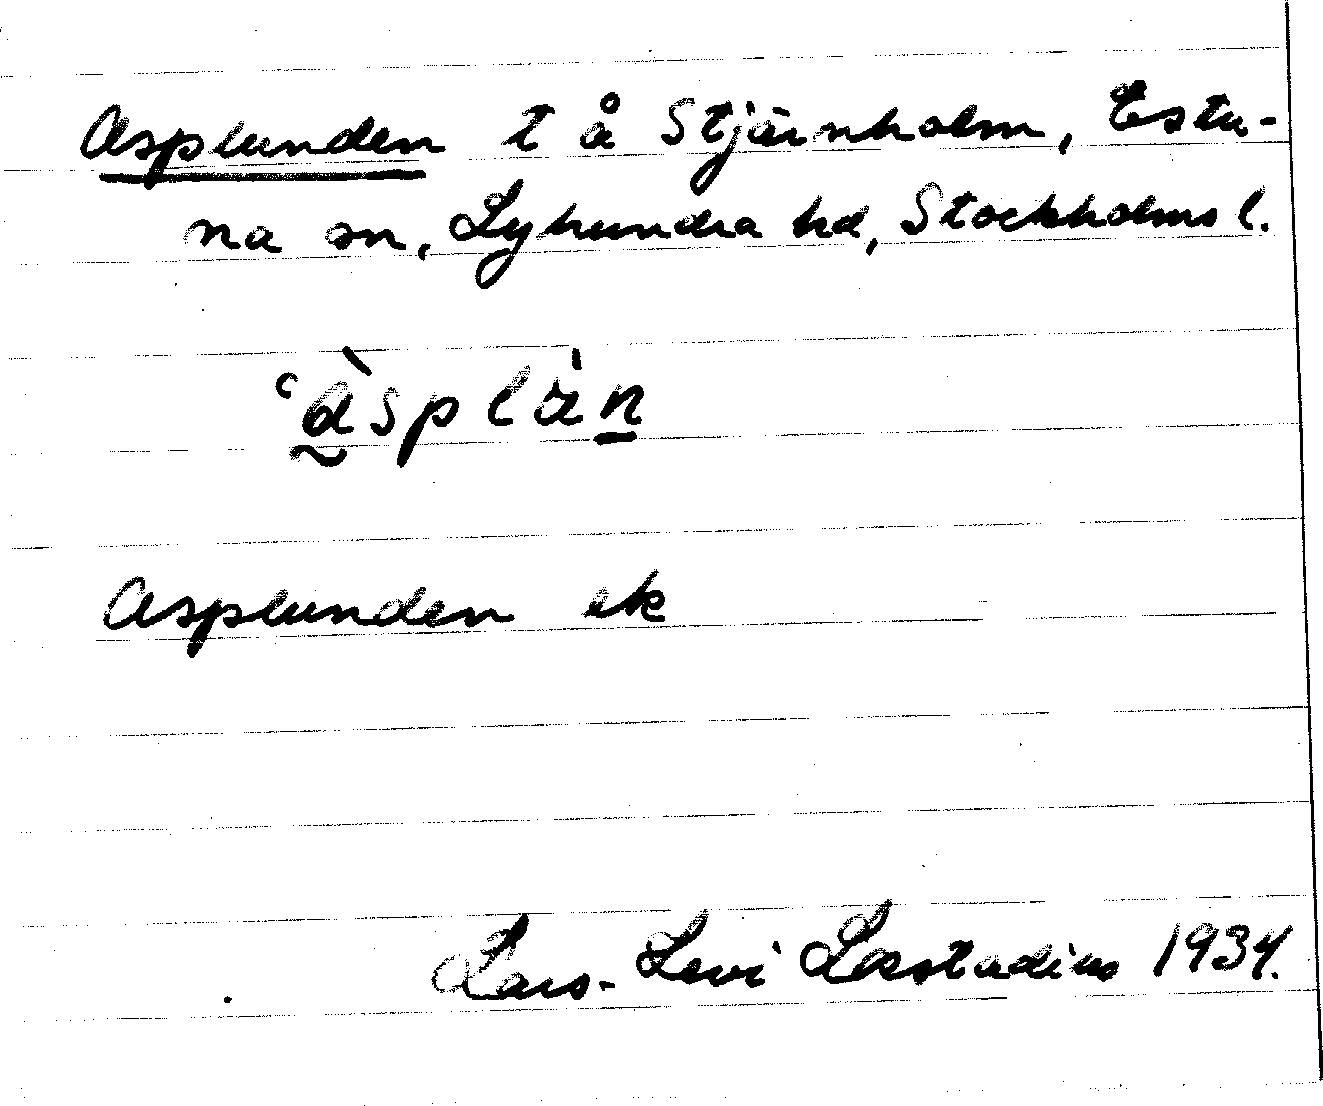 Asplunden t å Stjärnholm, Estu-
na sn, Lyhundra hd, Stockholms l.
Asplunden ek
Lars-Levi Læstadius 1934.